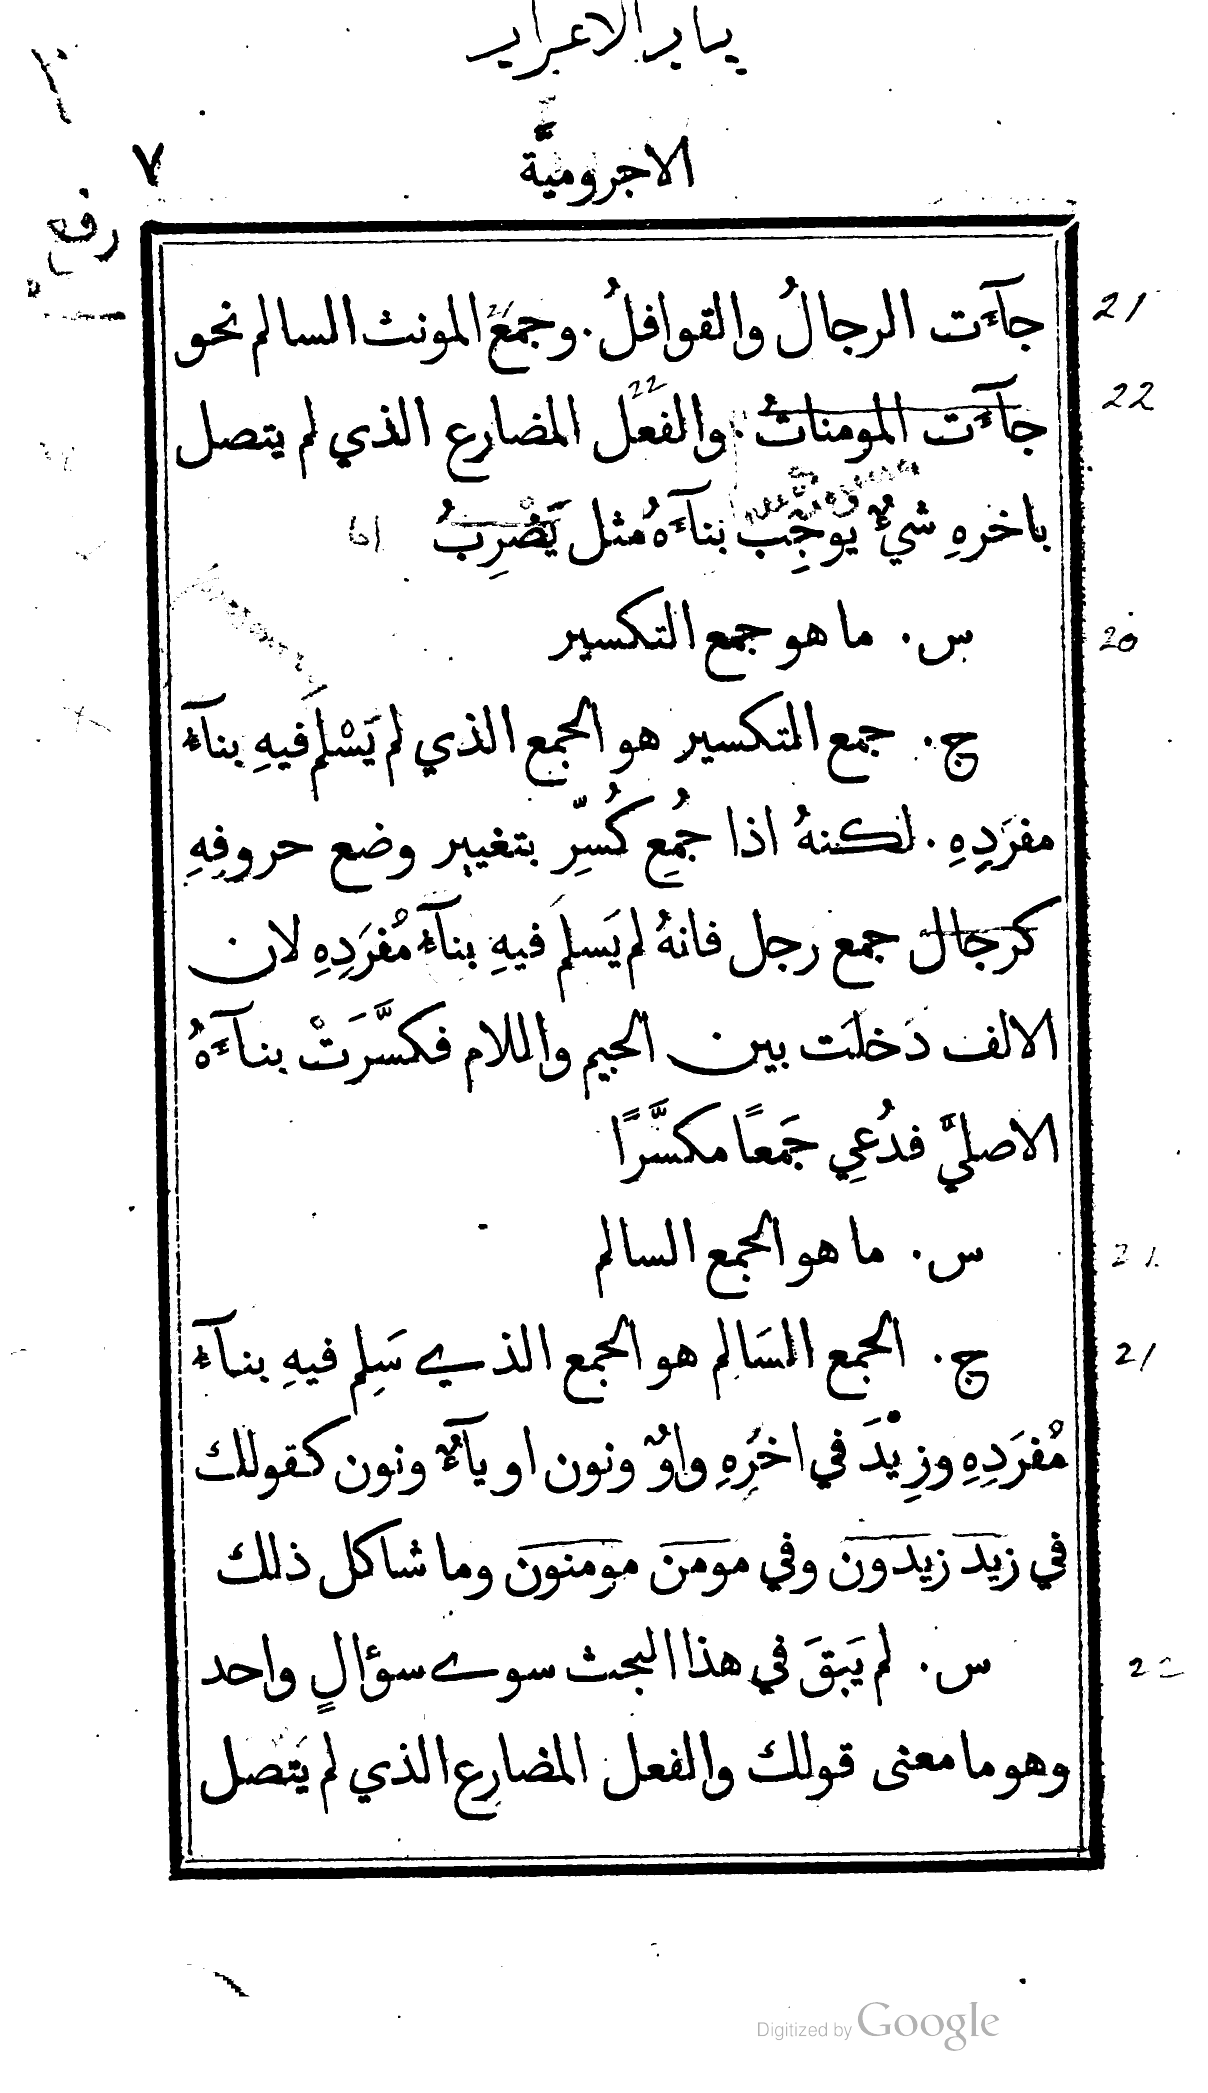 الاجروميَّة
٧
رفع
جآءَت الرجالُ والقوافلُ. وجمع المونث السالم نحو
21
جآءَت المومناتُ. والفعل المضارع الذي لم يتصل
22
22
باخرهِ شيءٌ يُوجِب بنآءَهُ مثل يَضْرِبُ
س. ما هو جمع التكسير
20
ج. جمع التكسير هو الجمع الذي لم يَسْلَم فيهِ بنآءُ
مفرَدِهِ. لكنهُ اذا جُمِع كُسِّر بتغيير وضع حروفِهِ
كرجال جمع رجل فانهُ لم يَسلَم فيهِ بنآءُ مُفرَدِهِ لان
الالف دَخلَت بين الجيم واللام فكسَّرَتْ بنآءَهُ
الاصليَّ فدُعِي جَمعًا مكسَّرًا
س. ما هو الجمع السالم
21
ج. الجمع السَالِم هو الجمع الذي سَلِم فيهِ بنآءُ
21
مُفرَدِهِ وزِيْدَ في اخرِهِ واوٌ ونون او يآءٌ ونون كقولك
في زيد زيدون وفي مومن مومنون وما شاكل ذلك
س. لم يَبقَ في هذا البحث سوى سؤالٍ واحد
وهو ما معنى قولك والفعل المضارع الذي لم يَتصل
Digitized by Google